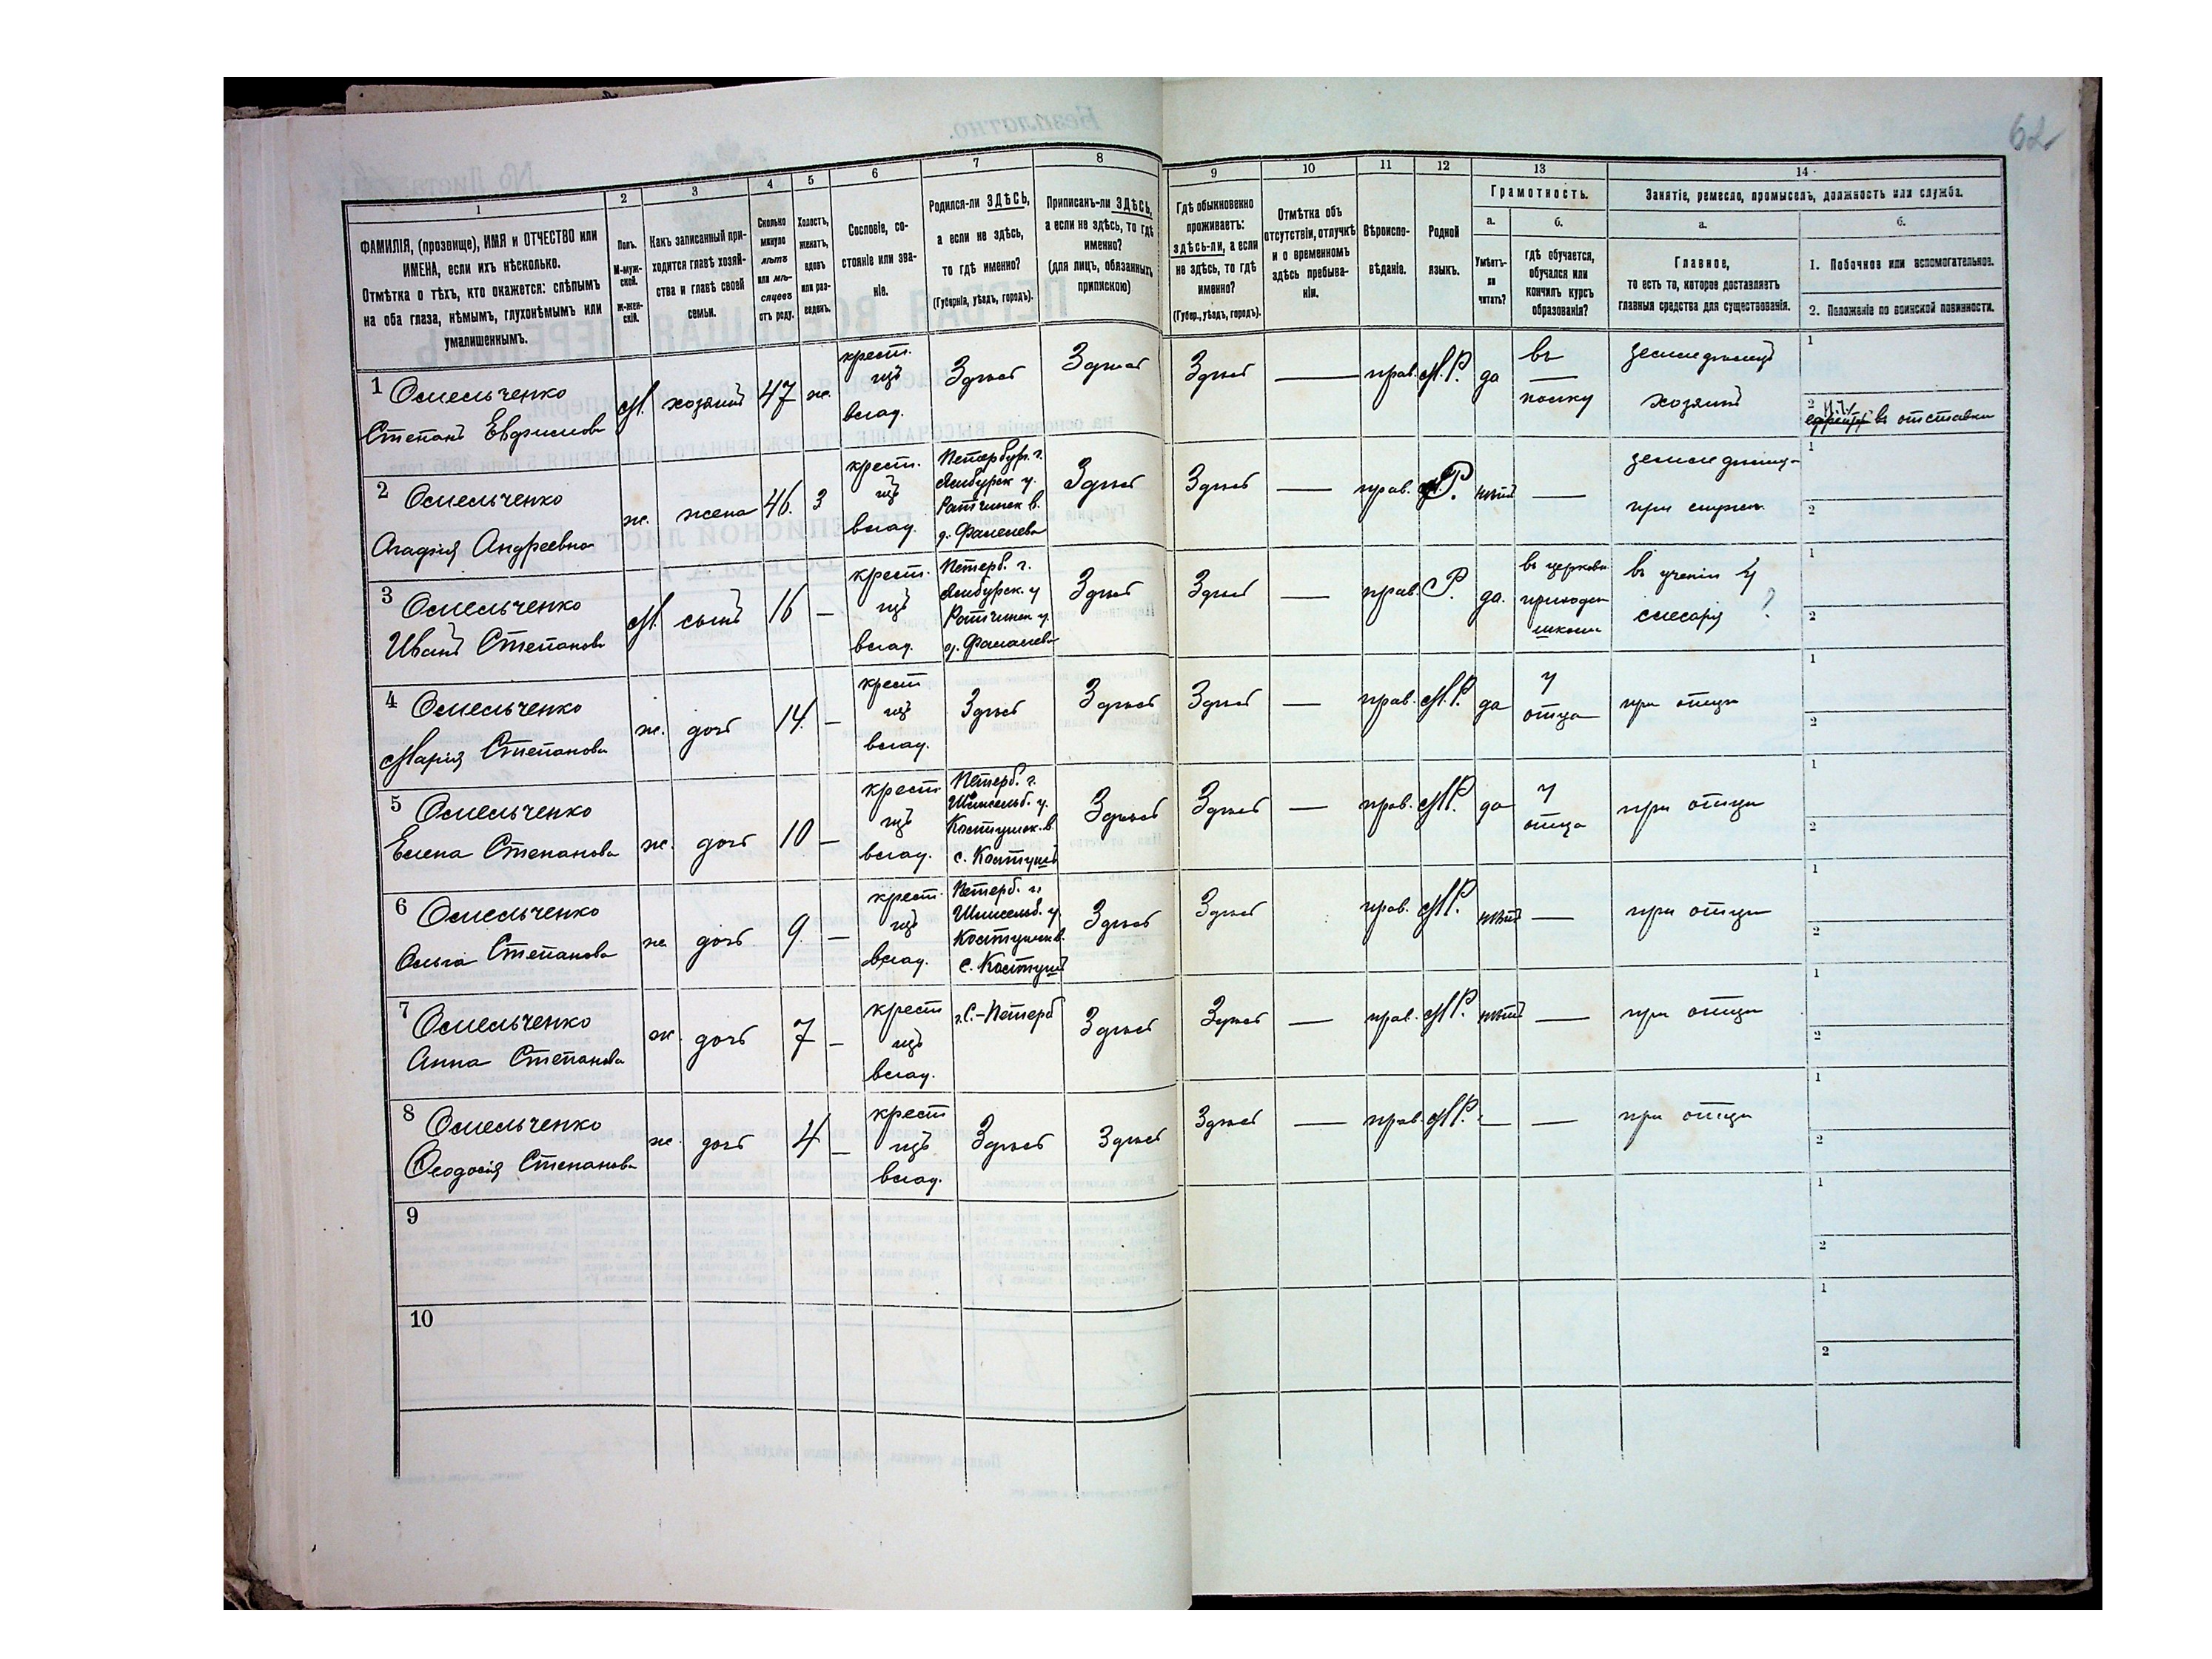 62
1
2
3
4
5
6
7
8
9
10
11
12
13
14
ФАМИЛІЯ, (прозвище), ИМЯ и ОТЧЕСТВО или
ИМЕНА, если ихъ нѣсколько.
Отмѣтка о тѣхъ, кто окажется: слѣпымъ
на оба глаза, нѣмымъ, глухонѣмымъ или
умалишеннымъ.
Полъ.
М-муж-
ской.
Ж-жен-
скій.
Какъ записанный при-
ходится главѣ хозяй-
ства и главѣ своей
семьи.
Сколько
минуло
лѣтъ
или мѣ-
сяцевъ
отъ роду.
Холостъ,
женатъ,
вдовъ
или раз-
веденъ.
Сословіе, со-
стояніе или зва-
ніе.
Родился-ли ЗДѢСЬ,
а если не здѣсь,
то гдѣ именно?
(Губернія, уѣздъ, городъ).
Приписанъ-ли ЗДѢСЬ,
а если не здѣсь, то гдѣ
именно?
(для лицъ, обязанныхъ
припискою)
Гдѣ обыкновенно
проживаетъ:
здѣсь-ли, а если
не здѣсь, то гдѣ
именно?
(Губер., уѣздъ, городъ).
Отмѣтка объ
отсутствіи, отлучкѣ
и о временномъ
здѣсь пребыва-
ніи.
Вѣроиспо-
вѣданіе.
Родной
языкъ.
Грамотность.
а.
Умѣетъ-
ли
читать?
б.
Гдѣ обучается,
обучался или
кончилъ курсъ
образованія?
Занятіе, ремесло, промыселъ, должность или служба.
а.
Главное,
то есть то, которое доставляетъ
главныя средства для существованія.
б.
1. Побочное или вспомогательное.
2. Положеніе по воинской повинности.
1 Омельченко
Степанъ Евфимовъ
М. хозяинъ 47 ж.
крест.
изъ
влад.
Здѣсь Здѣсь Здѣсь — прав. М.Р. да
въ
полку
земледѣлецъ
хозяинъ
1
2
въ отставки
2 Омельченко
Агафія Андреевна
ж. жена 46. З
крест.
изъ
влад.
Петербур. г.
Ямбурск у.
Ратчинск в.
д. Фалелева
Здѣсь Здѣсь — прав. Р. нѣтъ —
при
1
2
3 Омельченко
Иванъ Степановъ
М. сынъ 16 —
крест.
изъ
влад.
Петерб. г.
Ямбурск. у
Ратчинск у.
д. Фалалева
Здѣсь Здѣсь — прав. Р. да.
въ церковн
приходск
школи
въ ученіи у
слесаря ?
1
2
4 Омельченко
Марія Степанова
ж. дочь 14. —
крест
изъ
влад.
Здѣсь Здѣсь Здѣсь — прав. М.Р. да
у
отца
при отци
1
2
5 Омельченко
Елена Степанова
ж. дочь 10 —
крест
изъ
влад.
Петерб. г.
Шлисельб. у.
Здѣсь Здѣсь — прав. М.Р. да
у
отца
при отци
1
2
6 Омельченко
Ольга Степанова
ж. дочь 9. —
крест.
изъ
влад.
Петерб. г.
Шлисельб. у
Здѣсь Здѣсь прав. М.Р. нѣтъ —
при отци
1
2
7 Омельченко
Анна Степанова
ж. дочь 7 —
крест
изъ
влад.
г.С.-Петерб
Здѣсь Здѣсь — прав. М.Р. нѣтъ —
при отци
1
2
8 Омельченко
Феодосія Степанова
ж. дочь 4 —
крест
изъ
влад.
Здѣсь Здѣсь Здѣсь — прав. М.Р. — —
при отци
1
2
9
1
2
10
1
2